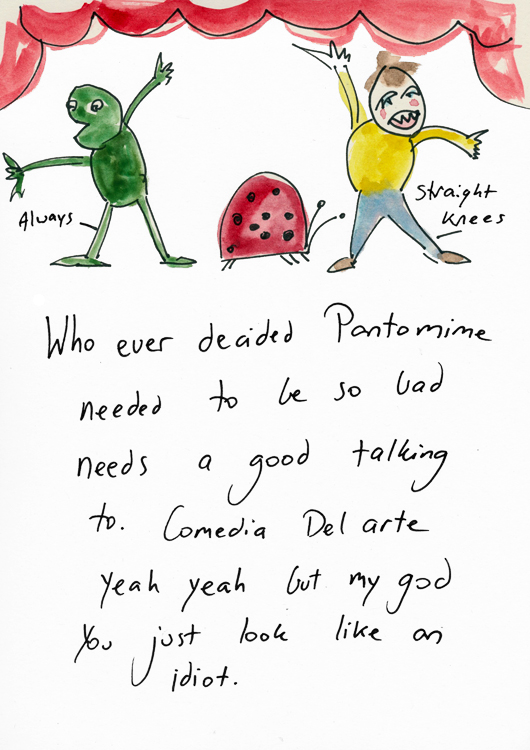 Always
Straight
Knees
Who ever decided Pantomime
needed to be so bad
needs a good talking
to. Comedia Del arte
yeah yeah but my god
You just look like an
idiot.